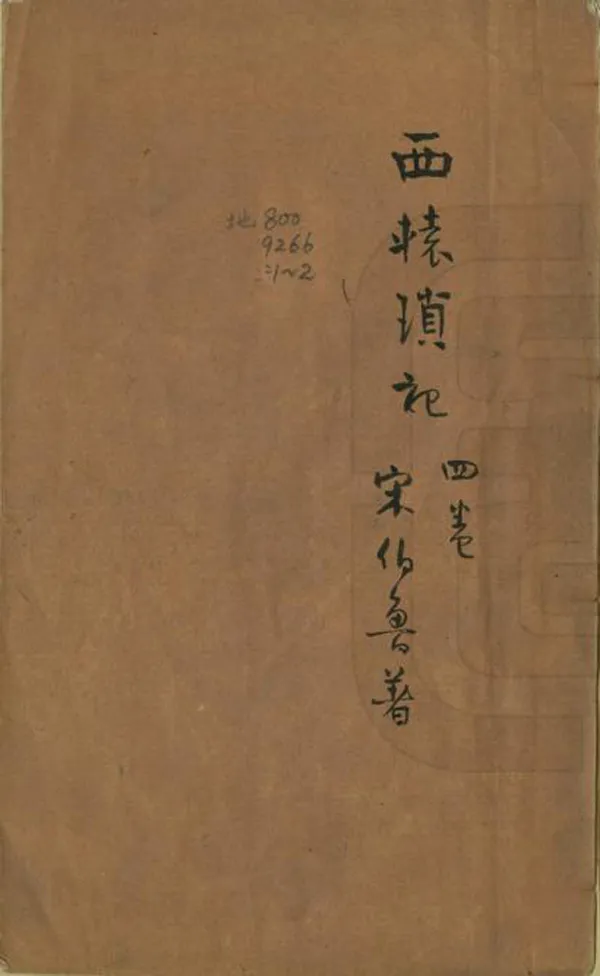 西轅瑣記
四卷
宋伯魯著
地800
9266
:1~2